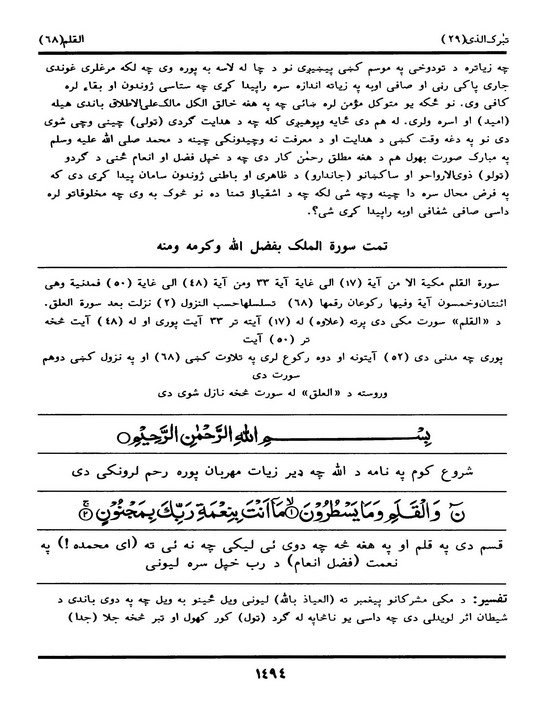 تبرک الذی(۲۹) القلم(۶۸)
چه زیاتره د تودوخی په موسم کښی پیښیږی نو د چا له لاسه به پوره وی چه لکه مرغلری غوندی
جاری پاکی رنی او صافی اوبه په زیاته اندازه سره راپیدا کړی چه ستاسی ژوندون او بقاء لره
کافی وی. نو ځکه یو متوکل مؤمن لره ښائی چه په هغه خالق الکل مالک علی الاطلاق باندی هیله
(امید) او اسره ولری. له هم دی ځایه وپوهیږی کله چه د هدایت گردی (تولی) چینی وچی شوی
دی نو په دغه وقت کښی د هدایت او د معرفت نه وچیدونکی چینه د محمد صلی الله علیه وسلم
په مبارک صورت بهول هم د هغه مطلق رحمٰن کار دی چه د خپل فضل او انعام ځنی د گردو
(تولو) ذوی‌الارواحو او ساکښانو (جاندارو) د ظاهری او باطنی ژوندون سامان پیدا کړی دی که
په فرض محال سره دا چینه وچه شی لکه چه د اشقیاؤ تمنا ده نو څوک به وی چه مخلوقاتو لره
داسی صافی شفافی اوبه راپیدا کړی شی؟.
تمت سورة الملک بفضل الله وکرمه ومنه
سورة القلم مکیة الا من آیة (۱۷) الی غایة آیة ۳۳ ومن آیة (۴۸) الی غایة (۵۰) فمدنیة وهی
اثنتان‌وخمسون آیة وفیها رکوعان رقمها (۶۸) تسلسلهاحسب النزول (۲) نزلت بعد سورة العلق.
د «القلم» سورت مکی دی پرته (علاوه) له (۱۷) آیته تر ۳۳ آیت پوری او له (۴۸) آیت څخه
تر (۵۰) آیت
پوری چه مدنی دی (۵۲) آیتونه او دوه رکوع لری په تلاوت کښی (۶۸) او په نزول کښی دوهم
سورت دی
وروسته د «العلق» له سورت څخه نازل شوی دی
بِسْمِ اللهِ الرَّحْمٰنِ الرَّحِيْمِ
شروع کوم په نامه د الله چه ډیر زیات مهربان پوره رحم لرونکی دی
نٓ وَالْقَلَمِ وَمَا يَسْطُرُوْنَ ۙ۱ مَا اَنْتَ بِنِعْمَةِ رَبِّكَ بِمَجْنُوْنٍ ۚ۲
قسم دی په قلم او په هغه څه چه دوی ئی لیکی چه نه ئی ته (ای محمده !) په
نعمت (فضل انعام) د رب خپل سره لیونی
تفسیر: د مکی مشرکانو پیغمبر ته (العیاذ بالله) لیونی ویل ځینو به ویل چه په دوی باندی د
شیطان اثر لویدلی دی چه داسی یو ناڅاپه له گرد (تول) کور کهول او تبر څخه جلا (جدا)
۱۴۹۴